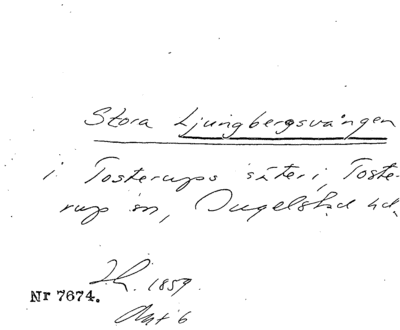 Stora Ljungbergsvången
i Tosterups säteri, Toste-
rup sn, Ingelstad hd.
H. 1859.
Nr 7674.
Akt 6